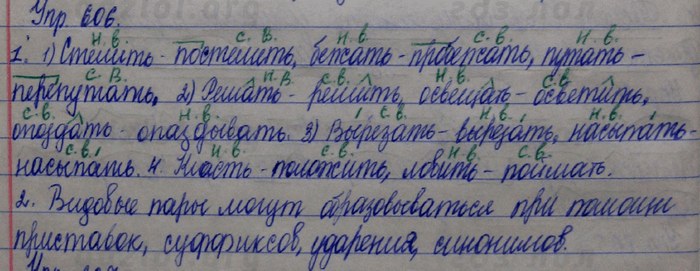 Упр. 606.
н.в. с.в. н.в. с.в. н.в.
1. 1) Стелить - постелить, бежать - пробежать, путать -
с.в. н.в. с.в. н.в. с.в.
перепутать. 2) Решать - решить, освещать - осветить,
с.в. н.в. с.в. н.в. н.в.
опоздать - опаздывать. 3) Вырезать - вырезать, насыпать -
с.в. н.в. с.в. н.в. с.в.
насыпать. 4. Класть - положить, ловить - поймать.
2. Видовые пары могут образовываться при помощи
приставок, суффиксов, ударения, синонимов.